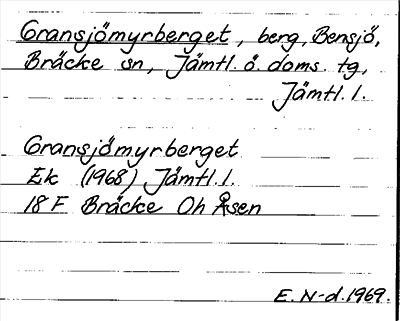 Gransjömyrberget, berg, Bensjö,
Bräcke sn, Jämtl. ö. doms. tg,
Jämtl. l.
Gransjömyrberget
Ek (1968) Jämtl. l.
18 F Bräcke Oh Åsen
E. N-d. 1969.